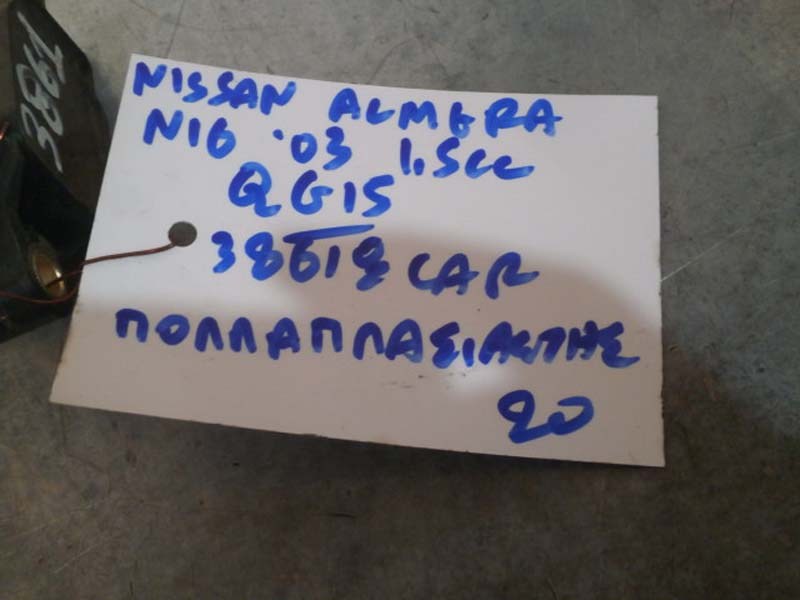 3861
NISSAN ALMERA
N16 '03 1.5cc
QG15
38618 CAR
ΠΟΛΛΑΠΛΑΣΙΑΣΤΗΣ
20